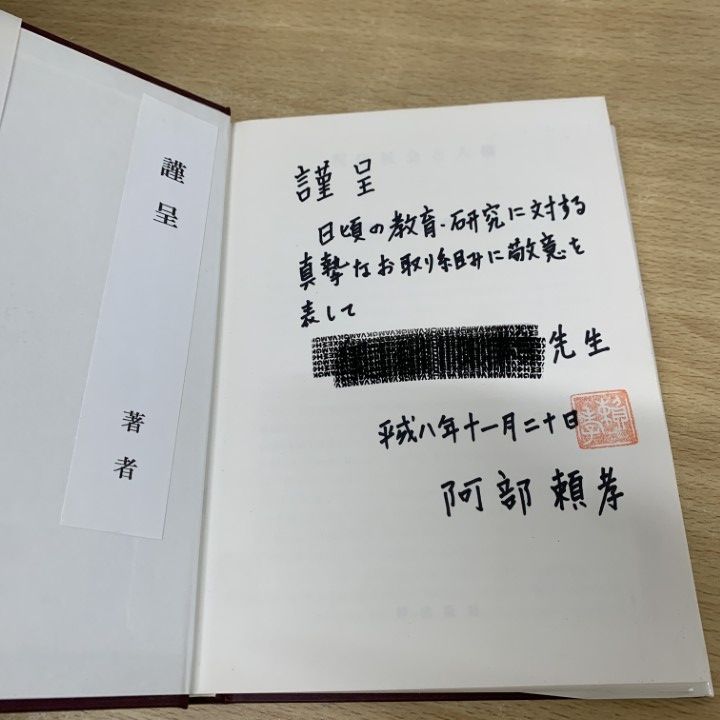 謹呈
著者
謹呈
日頃の教育・研究に対する
真摯なお取り組みに敬意を
表して
先生
平成八年十一月二十日
阿部頼孝